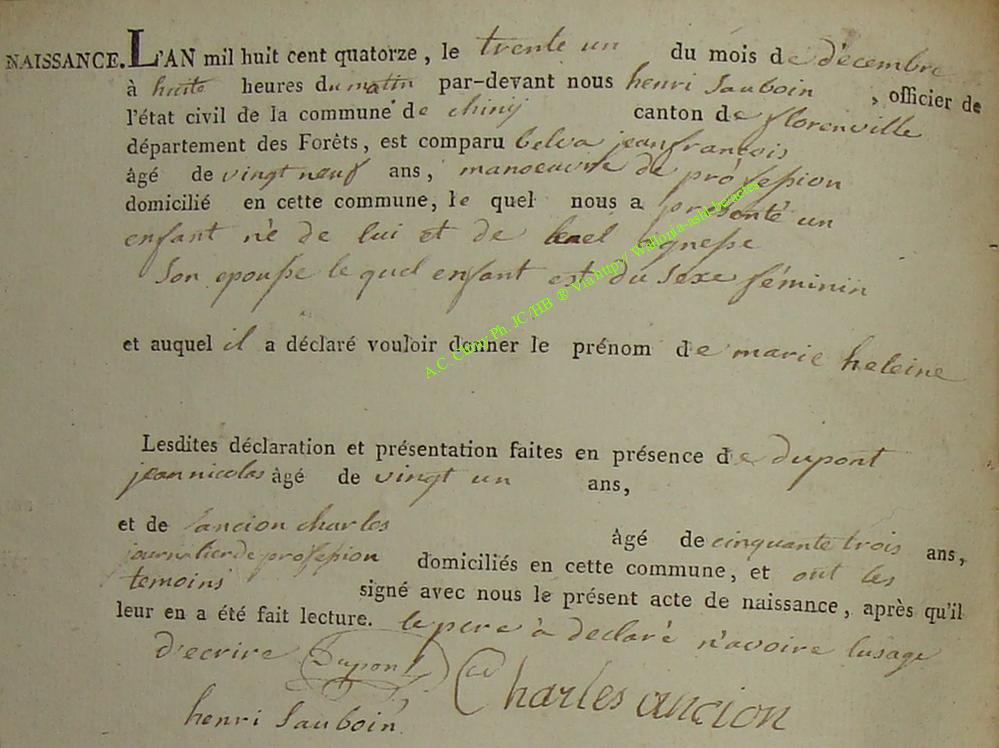 NAISSANCE. L'AN mil huit cent quatorze, le trente un du mois de décembre
à huite heures du matin par-devant nous henri Sauboin, officier de
l'état civil de la commune de chiny canton de florenville
département des Forêts, est comparu belva jean francois
âgé de vingt neuf ans, manoeuvre de profession
domicilié en cette commune, le quel nous a presenté un
enfant né de lui et de agnesse
Son epousse le quel enfant est du Sexe féminin
et auquel il a déclaré vouloir donner le prénom de marie heleine
Lesdites déclaration et présentation faites en présence de dupont
jean nicolas âgé de vingt un ans,
et de lancion charles âgé de cinquante trois ans,
journalier de profession domiciliés en cette commune, et ont les
temoins signé avec nous le présent acte de naissance, après qu'il
leur en a été fait lecture. le pere à declaré n'avoire lusage
d'ecrire Dupont Charles ancion
henri Sauboin
A.C. Chiny Ph. JC/HB ® Via bupy / Wallonia-asbl-benelux